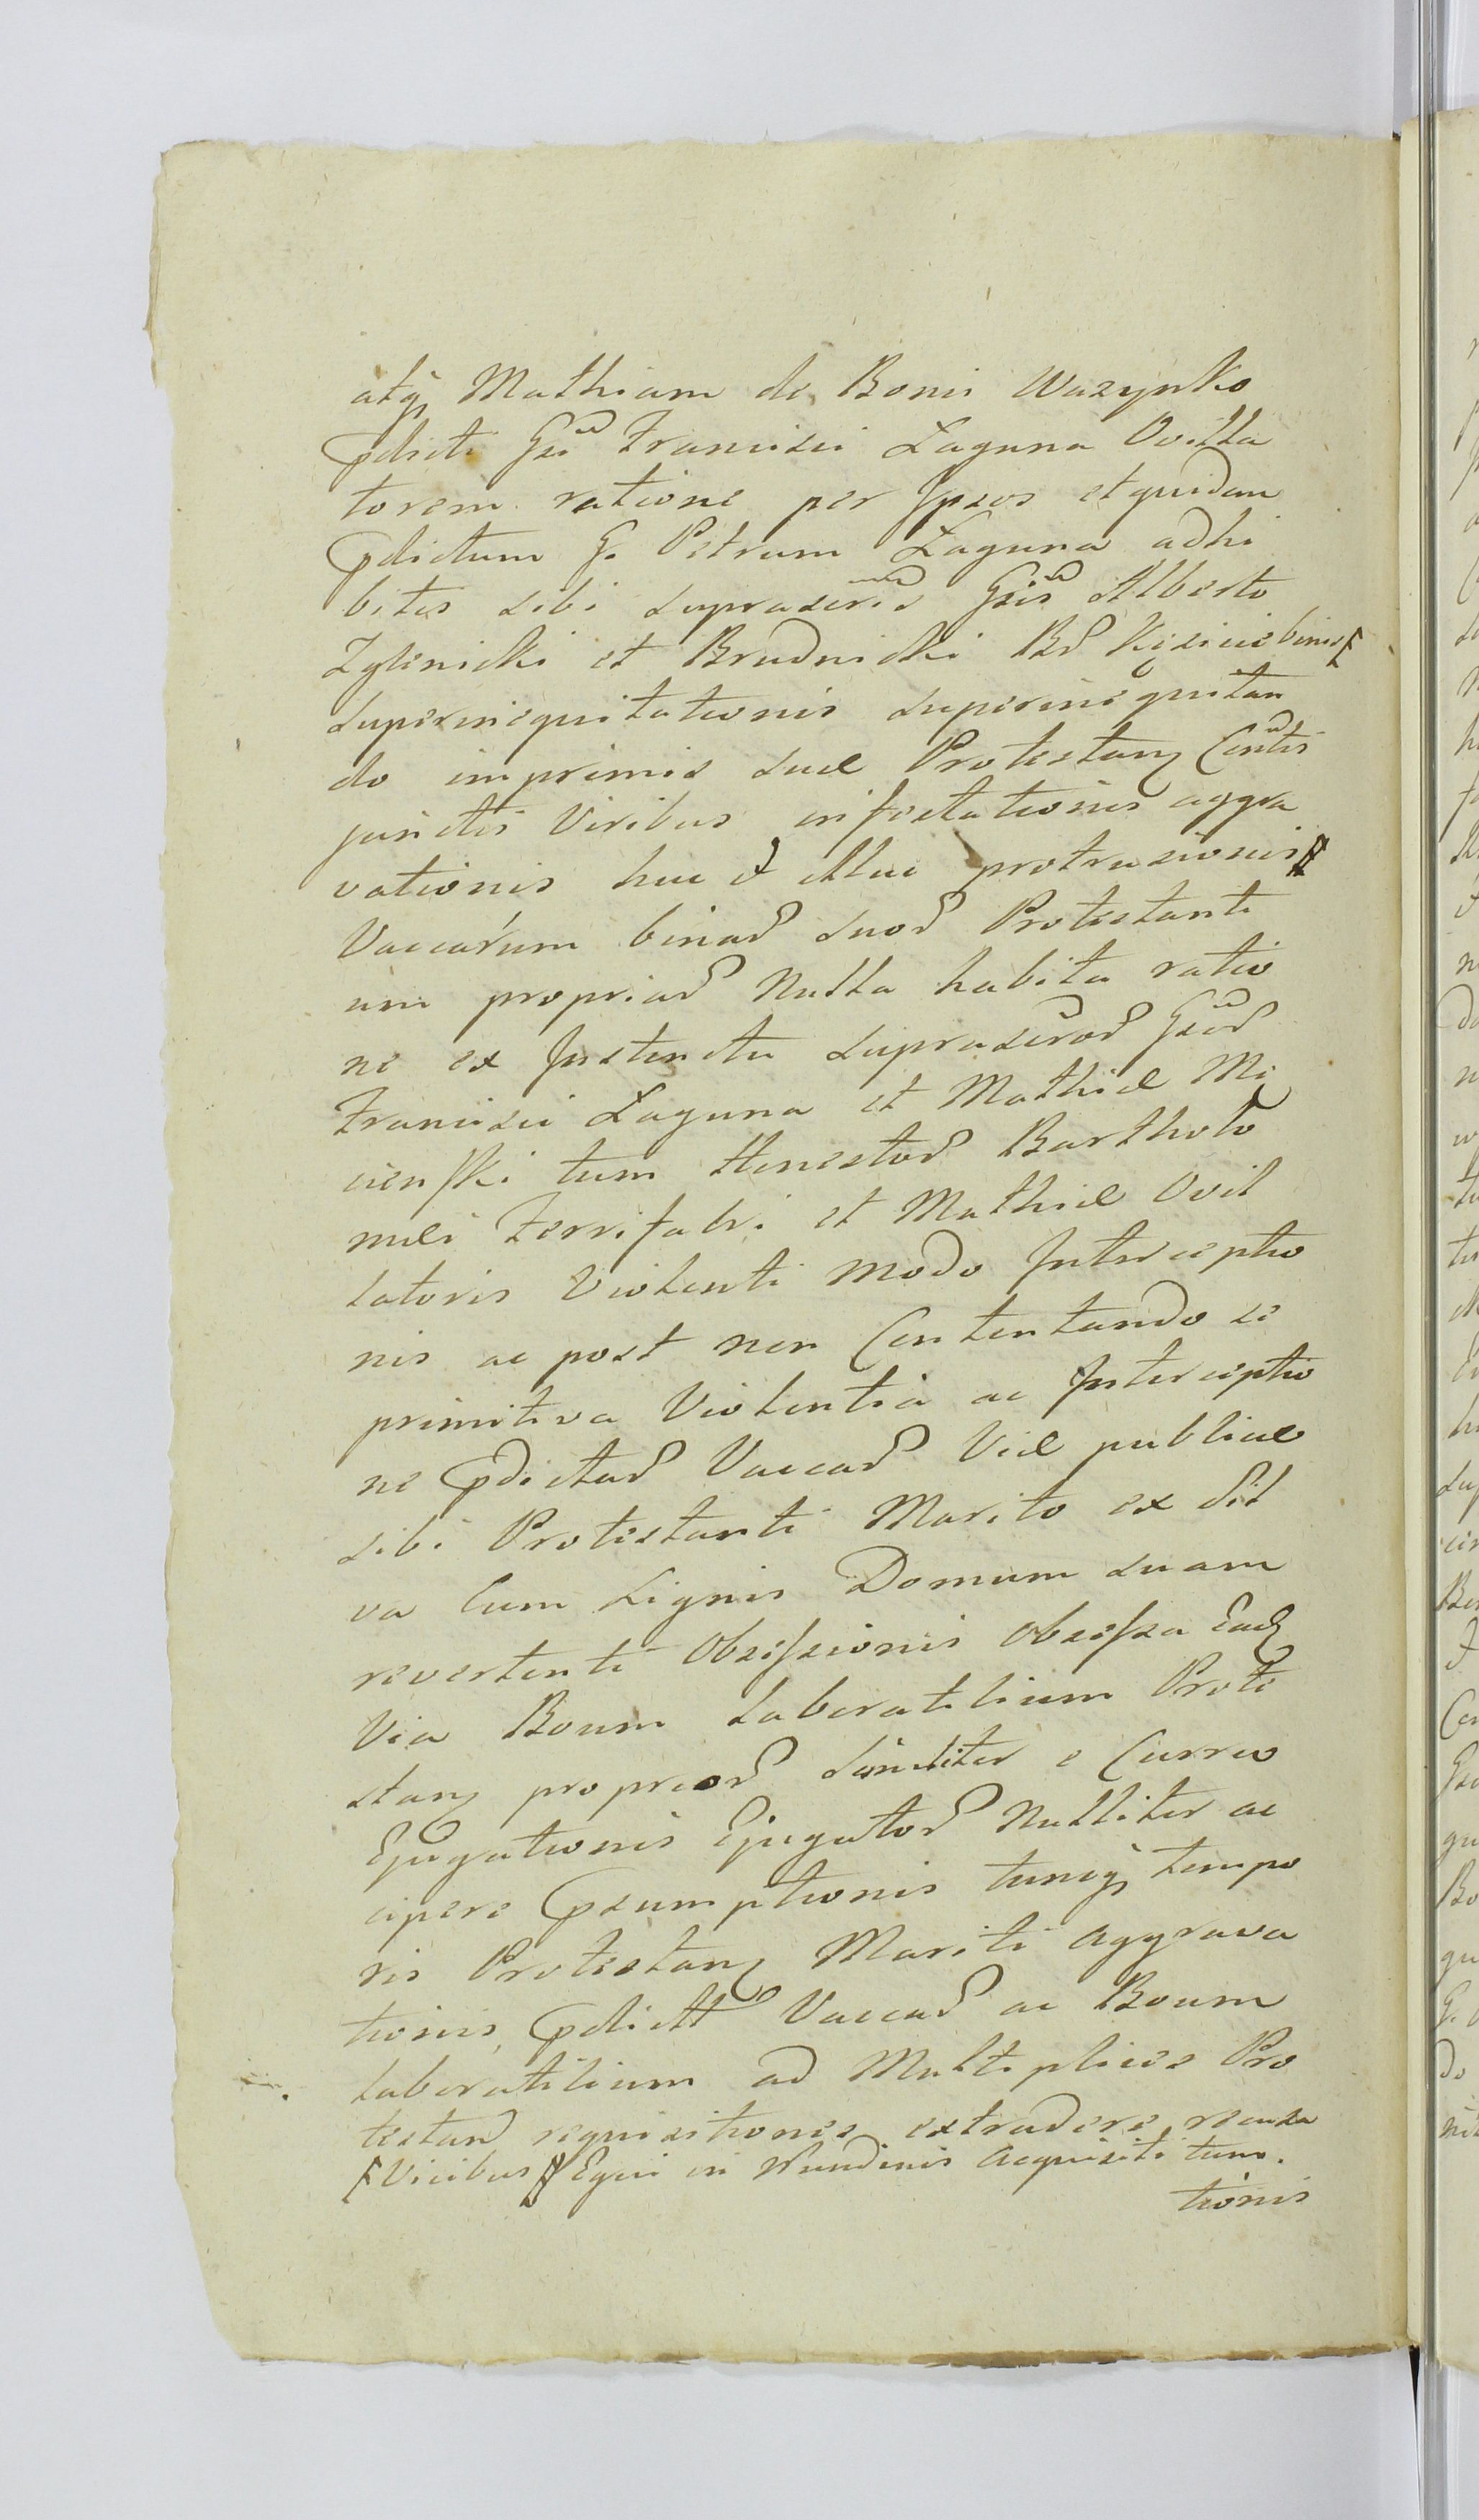 atq, Mathiam de Bonis Wazynko
pdicti Gsi Francisci Laguna Ovilla
torem ratione per Ipsos et quidem
pdictum G. Petrum Laguna adhi
bitis sibi suprascris Gsis Alberto
Zylenicki et Brudnicki Bd binis
superinequitationis superinequitan
do imprimis suae Protestan Contis
junctis Viribus infestationis aggra
vationis huc et illuc protrusionis
Vaccarum binar suor Protestanti
um propriar Nulla habita ratio
ne ex Instinctu suprascror Gsor
Francisci Laguna et Mathiae Mi
cienski tum Honestor Bartholo
mei Ferrifabri et Mathiae Ovil
latoris Violenti modo Interceptio
nis ac post non Contentando se
primitiva Violentia ac Interceptio
ne pdictar Vaccar Viae publicae
sibi Protestanti Marito ex Sil
va Cum Lignis Domum suam
revertenti Obsessionis obsessa Eadq
Via Boum laboratilium Prote
stan proprior similiter e Curru
Ejugationis Ejugator Nulliter ac
cipere psumptionis tuncq, tempo
ris Protestan Mariti aggrava
tionis, pdictt Vaccar ac Boum
laboratilium ad Multiplices Pro
testan requisitiones extradere recusa
Vicibus Equi in Nundinis acquisiti tum.
tionis